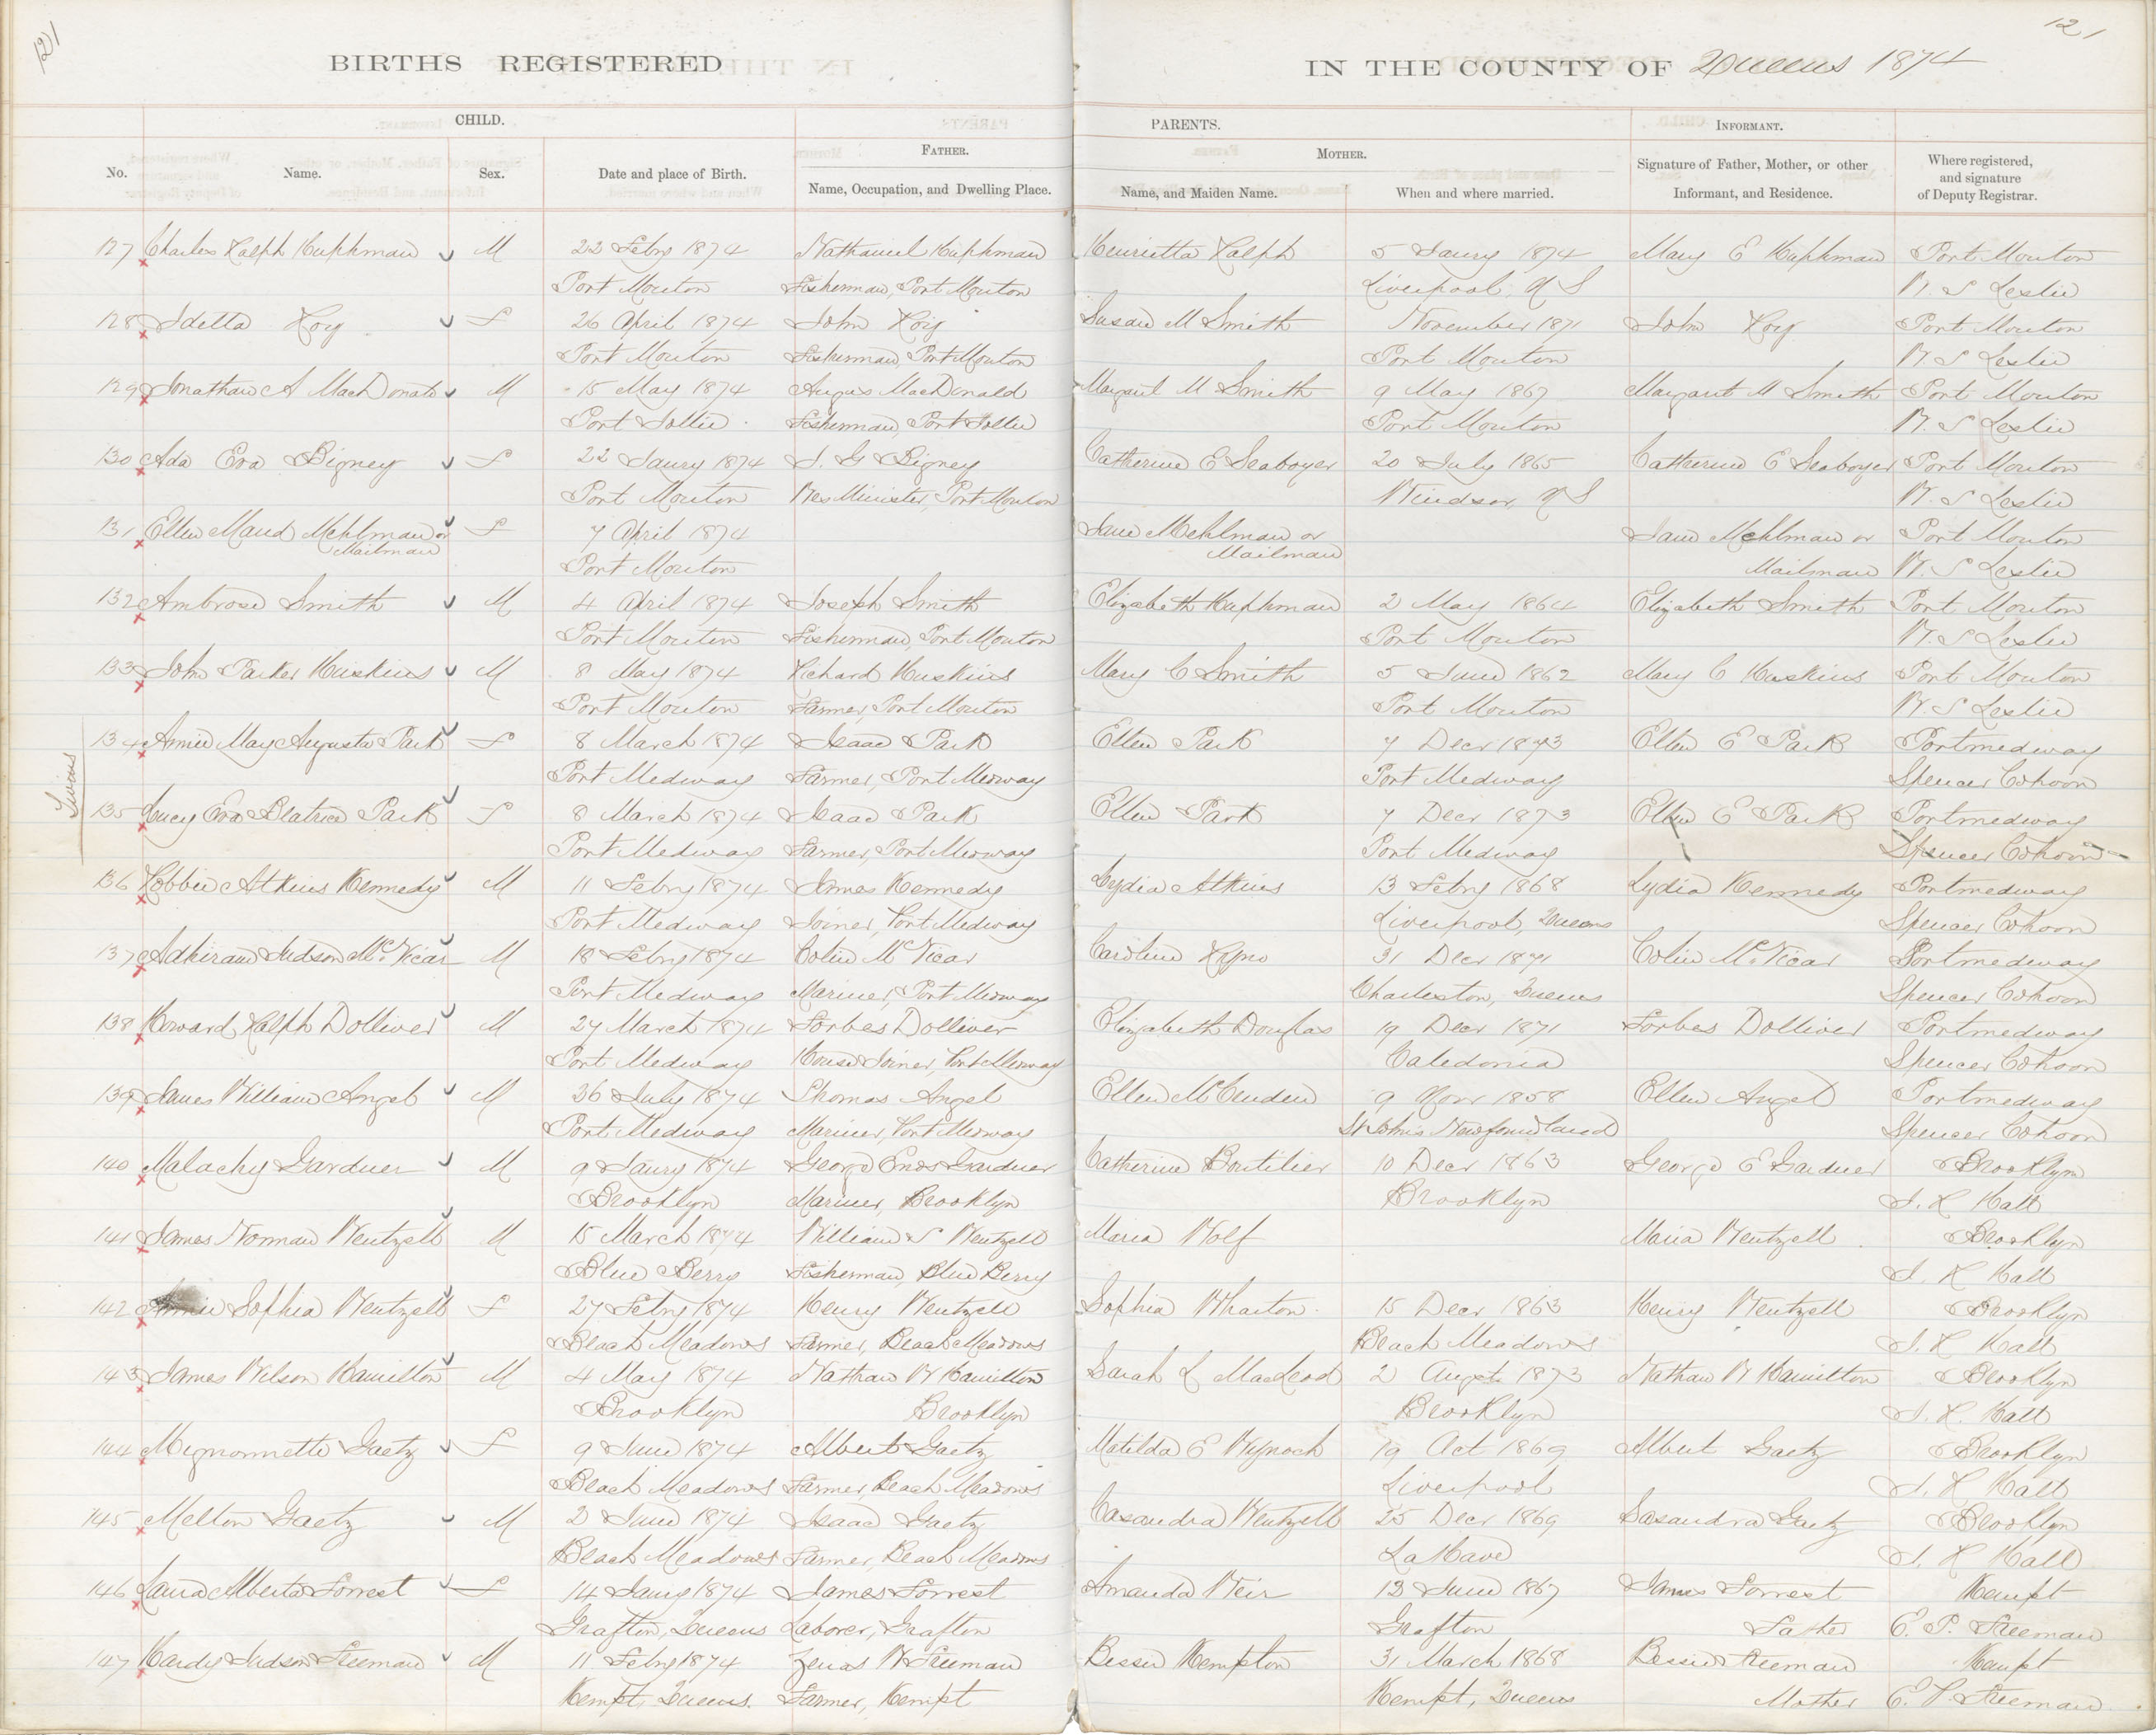 121
121
BIRTHS REGISTERED IN THE COUNTY OF Queens 1874
CHILD. PARENTS. INFORMANT.
FATHER. MOTHER.
No. Name. Sex. Date and place of Birth. Name, Occupation, and Dwelling Place. Name, and Maiden Name. When and where married. Signature of Father, Mother, or other Informant, and Residence. Where registered, and signature of Deputy Registrar.
127 Charles Ralph Huphman M 22 Febry 1874 Nathaniel Huphman Henrietta Ralph 5 Jaury 1874 Mary E Huphman Port Mouton
Port Mouton Fisherman, Port Mouton Liverpool, N S W. S Leslie
128 Idella Roy F 26 April 1874 John Roy Susan M Smith November 1871 John Roy Port Mouton
Port Mouton Fisherman, Port Mouton Port Mouton W S Leslie
129 Jonathan A MacDonald M 15 May 1874 Angus MacDonald Margaret M Smith 9 May 1867 Margaret M Smith Port Mouton
Port Jollie Fisherman, Port Jollie Port Mouton W. S Leslie
130 Ada Eva Bigney F 22 Jaury 1874 J. G Bigney Catherine E Seaboyer 20 July 1865 Catherine E Seaboyer Port Mouton
Port Mouton Wes Minister, Port Mouton Windsor, N S W. S Leslie
131 Ellen Maud Mehlman or F 7 April 1874 Jane Mehlman or Jane Mehlman or Port Mouton
Mailman Port Mouton Mailman Mailman W. S Leslie
132 Ambrose Smith M 4 April 1874 Joseph Smith Elizabeth Huphman 2 May 1864 Elizabeth Smith Port Mouton
Port Mouton Fisherman, Port Mouton Port Mouton W. S Leslie
133 John Parker Huskins M 8 May 1874 Richard Huskins Mary C Smith 5 June 1862 Mary C Huskins Port Mouton
Port Mouton Farmer, Port Mouton Port Mouton W. S Leslie
Twins
134 Annie May Augusta Park F 8 March 1874 Isaac Park Ellen Park 7 Decr 1873 Ellen E Park Portmedway
Port Medway Farmer, Port Medway Port Medway Spencer Cohoon
135 Lucy Eva Beatrice Park F 8 March 1874 Isaac Park Ellen Park 7 Decr 1873 Ellen E Park Portmedway
Port Medway Farmer, Port Medway Port Medway Spencer Cohoon
136 Robbie Atkins Kennedy M 11 Febry 1874 James Kennedy Lydia Atkins 13 Febry 1868 Lydia Kennedy Portmedway
Port Medway Joiner, Port Medway Liverpool, Queens Spencer Cohoon
137 Adhiram Judson McVicar M 18 Febry 1874 Colin McVicar Caroline 31 Decr 1871 Colin McVicar Portmedway
Port Medway Mariner, Port Medway Charleston, Queens Spencer Cohoon
138 Howard Ralph Dolliver M 27 March 1874 Forbes Dolliver Elizabeth Douglas 19 Decr 1871 Forbes Dolliver Portmedway
Port Medway House Joiner, Port Medway Caledonia Spencer Cohoon
139 James William Angel M 26 July 1874 Thomas Angel Ellen McCuden 9 Novr 1858 Ellen Angel Portmedway
Port Medway Mariner, Port Medway St Johns Newfoundland Spencer Cohoon
140 Malachy Gardner M 9 Jaury 1874 George Enos Gardner Catherine Boutilier 10 Decr 1863 George E Gardner Brooklyn
Brooklyn Mariner, Brooklyn Brooklyn J. R Hall
141 James Norman Wentzell M 15 March 1874 William S Wentzell Maria Wolf Maria Wentzell Brooklyn
Blue Berry Fisherman, Blue Berry J. R Hall
142 Annie Sophia Wentzell F 27 Febry 1874 Henry Wentzell Sophia Wharton 15 Decr 1863 Henry Wentzell Brooklyn
Beach Meadows Farmer, Beach Meadows Beach Meadows J. R Hall
143 James Wilson Hamilton M 4 May 1874 Nathan W Hamilton Sarah L MacLeod 2 Augst 1873 Nathan W Hamilton Brooklyn
Brooklyn Brooklyn Brooklyn J. R. Hall
144 Mignonnette Gaetz F 9 June 1874 Albert Gaetz Matilda E Wynoch 19 Oct 1869 Albert Gaetz Brooklyn
Beach Meadows Farmer, Beach Meadows Liverpool J. R Hall
145 Melton Gaetz M 2 June 1874 Isaac Gaetz Casandra Wentzell 25 Decr 1869 Casandra Gaetz Brooklyn
Beach Meadows Farmer, Beach Meadows LaHave J. R Hall
146 Laura Alberta Forrest F 14 Jaury 1874 James Forrest Amanda Weir 13 June 1867 James Forrest Kempt
Grafton, Queens Laborer, Grafton Grafton Father E. P. Freeman
147 Hardy Judson Freeman M 11 Febry 1874 Zenas W Freeman Bessie Kempton 31 March 1868 Bessie Freeman Kempt
Kempt, Queens. Farmer, Kempt Kempt, Queens Mother E. P. Freeman